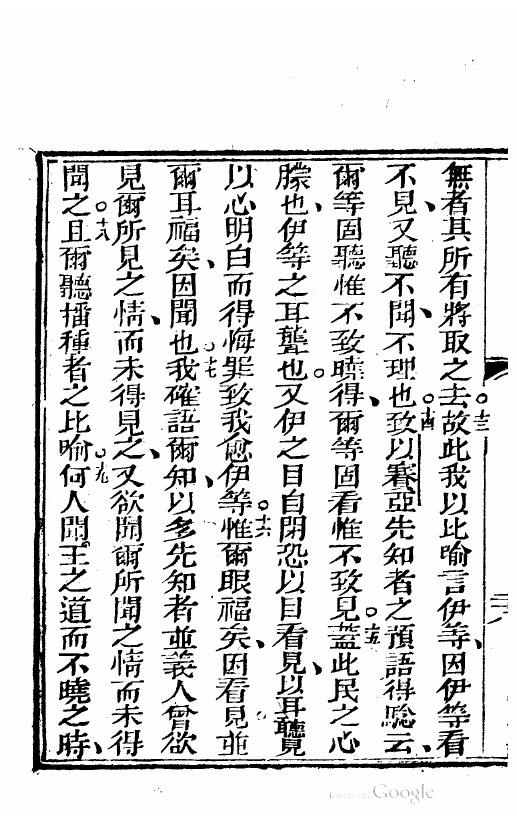 無者其所有將取之去。十三故此我以比喻言伊等、因伊等看
不見、又聽不聞、不理也。十四致以賽亞先知者之預語得騐云、
爾等固聽惟不致曉得、爾等固看惟不致見。十五蓋此民之心
朦也、伊等之耳聾也。又伊之目自閉恐以目看見、以耳聽覺
以心明白而得悔罪致我愈伊等。十六惟爾眼福矣、因看見並
爾耳福矣、因聞也。十七我確語爾知、以多先知者並義人曾欲
見爾所見之情、而未得見之、又欲聞爾所聞之情而未得
聞之。十八且爾聽播種者之比喻。十九何人聞王之道而不曉之時、
二八
Digitized by Google